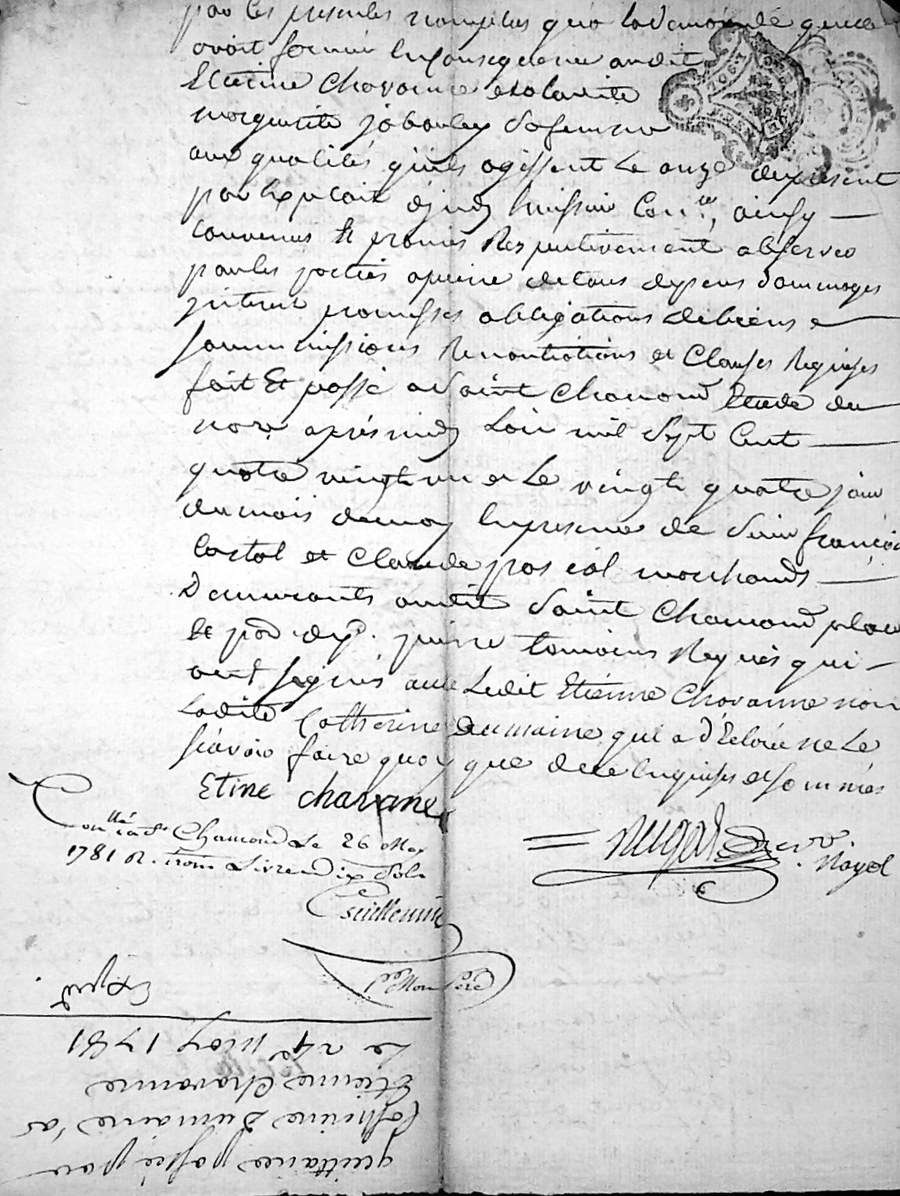 par les presentes
avoit formée audit
Etienne Chavanne et a laditte
marguerite jabouley sa femme
aux qualités qu'ils agissent Le onze du present
par Exploit ainsy
convenus & promis Respectivement observer
par les parties apeine de tous depens dommages
jnterest promesses obligations de biens
soummissions Renontiations et Clauses Requises
fait Et passé a Saint Chamond Etude du
nore. apres midy Lan mil Sept Cent
quatre vingt un et Le vingt quatre jour
du mois de may En presence de françois
et Claude pascal marchands
Demeurants audit Saint Chamond
temoins Requis qui
ont signés avec Ledit Etienne Chavanne non
Ladite Catherine Dumaine qui a déclaré ne Le
sçavoir faire quoy que de ce Enquises et sommées
Etine chavane
Conllé. a St Chamond Le 26 May
1781 R. Livre dix Sols
Noyel
Expdié.
quittance passée par
Catherine Dumaine a
Etienne Chavanne
Le 24e may 1781